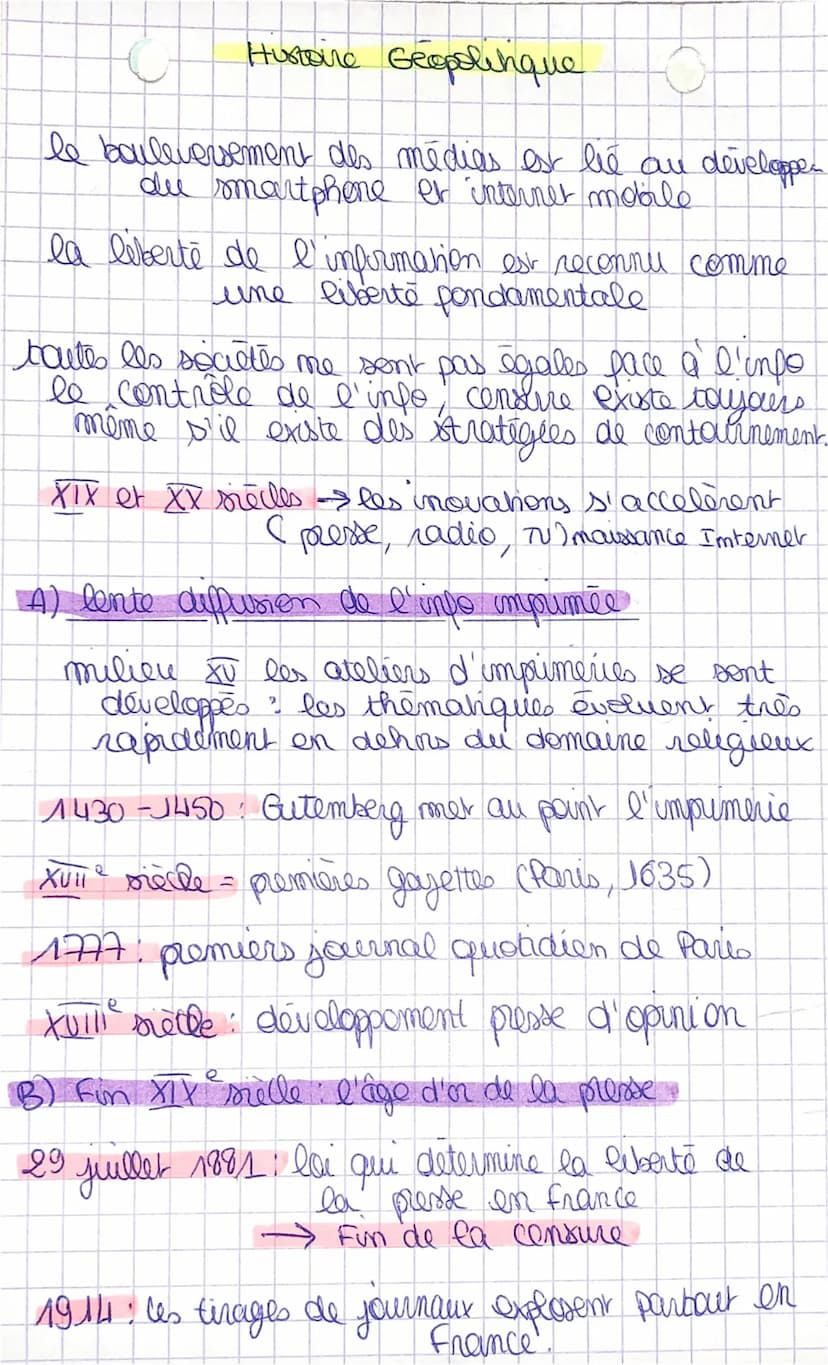 Histoire Géopolitique
le bouleversement des médias est lié au développe
du smartphone et internet mobile
la liberté de l'information est reconnu comme
une liberté fondamentale
toutes les sociétés ne sont pas égales face à l'info
le contrôle de l'info, censure existe toujours
même s'il existe des stratégies de contournement.
XIX et XX siècles → les inovations s'accelèrent
(presse, radio, TV) naissance Internet
A) lente diffusion de l'info imprimée
milieu XV les ateliers d'imprimeries se sont
développés : les thématiques évoluent très
rapidement en dehors du domaine religieux
1430-1450 : Gutemberg met au point l'imprimerie
XVIIe siècle = premières gazettes (Paris, 1635)
1777 : premiers journal quotidien de Paris
XVIIIe siècle : développement presse d'opinion
B) Fin XIXe siècle : l'âge d'or de la presse
29 juillet 1881 : loi qui détermine la liberté de
la presse en france
→ Fin de la censure
1914 : les tirages de journaux explosent partout en
France.